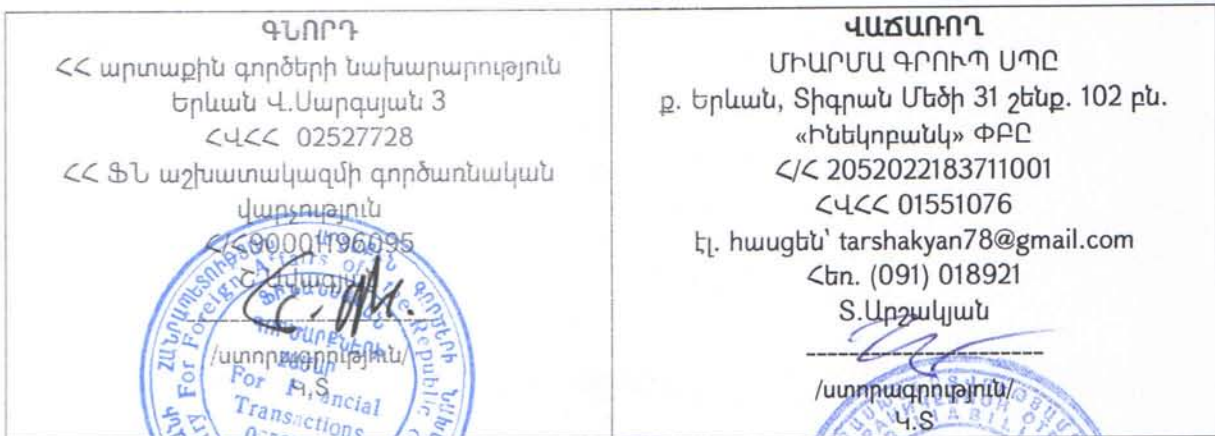 ԳՆՈՐԴ
ՀՀ արտաքին գործերի նախարարություն
Երևան Վ.Սարգսյան 3
ՀՎՀՀ 02527728
ՀՀ ՖՆ աշխատակազմի գործառնական
վարչություն
Հ/Հ90001196095
Շ.Ավագյան
/ստորագրություն/
Կ.Տ
For Financial
Transactions
ՎԱՃԱՌՈՂ
ՄԻԱՐՄԱ ԳՐՈՒՊ ՍՊԸ
ք. Երևան, Տիգրան Մեծի 31 շենք. 102 բն.
«Ինեկոբանկ» ՓԲԸ
Հ/Հ 2052022183711001
ՀՎՀՀ 01551076
էլ. հասցեն՝ tarshakyan78@gmail.com
Հեռ. (091) 018921
Տ.Արշակյան
/ստորագրություն/
Կ.Տ